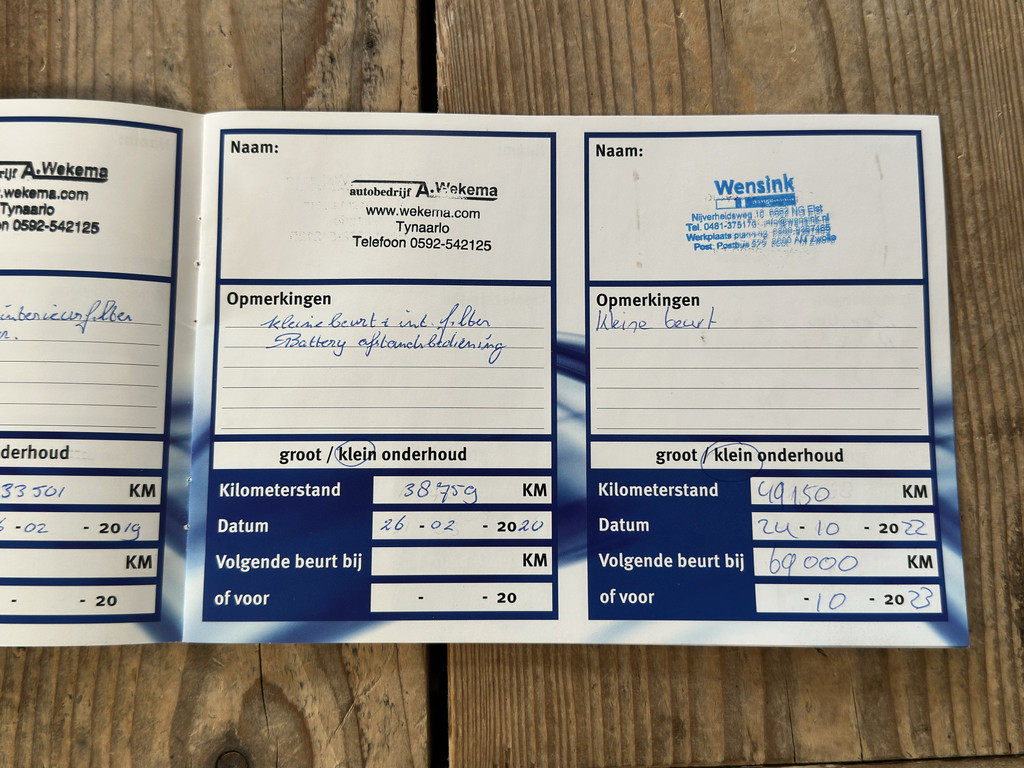 A.Wekema
.wekema.com
Tynaarlo
0592-542125
interieurfilter
derhoud
33501 KM
-02 - 2019
KM
- - 20
Naam:
autobedrijf A.Wekema
www.wekema.com
Tynaarlo
Telefoon 0592-542125
Opmerkingen
kleine beurt + int. filter
Battery afstandsbediening
groot / klein onderhoud
Kilometerstand 38759 KM
Datum 26 - 02 - 2020
Volgende beurt bij KM
of voor - - 20
Naam:
Wensink
Nijverheidsweg 10 6662 NG Elst
Tel. 0481-375176
Werkplaats planning
Post. Postbus Zwolle
Opmerkingen
Kleine beurt
groot / klein onderhoud
Kilometerstand 49150 KM
Datum 24 - 10 - 2022
Volgende beurt bij 69000 KM
of voor - 10 - 2023